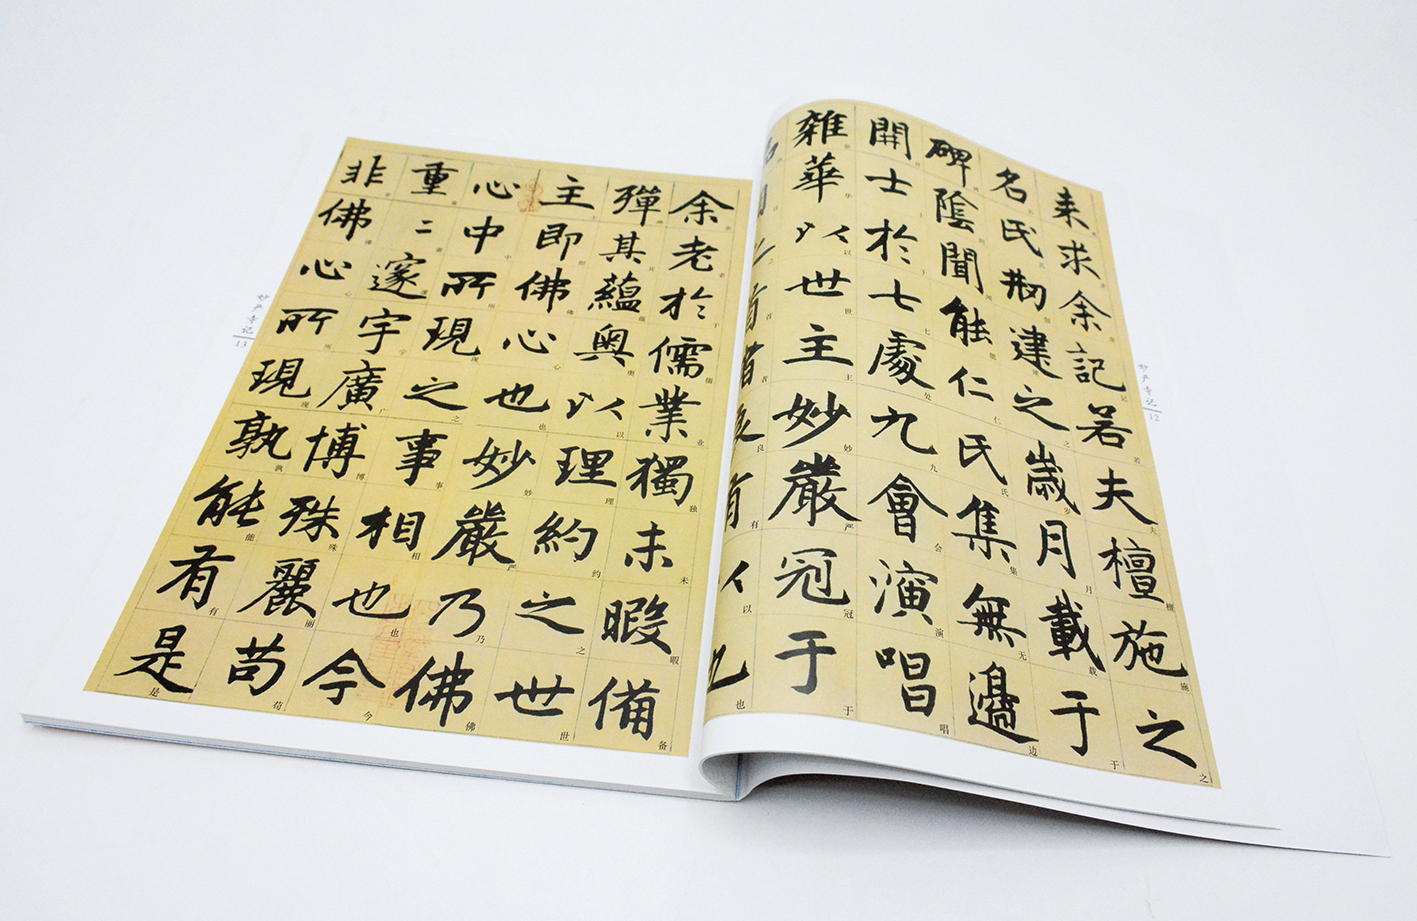 来求余記若夫檀施之
名氏剏建之歲月載于
碑陰聞能仁氏集無邊
開士於七處九會演唱
雜華以世主妙嚴冠于
品目之首者良有以也
妙严寺记
12
余老於儒業獨未暇備
殫其蘊奧以理約之世
主即佛心也妙嚴乃佛
心中所現之事相也今
重二邃宇廣博殊麗苟
非佛心所現孰能有是
妙严寺记
13